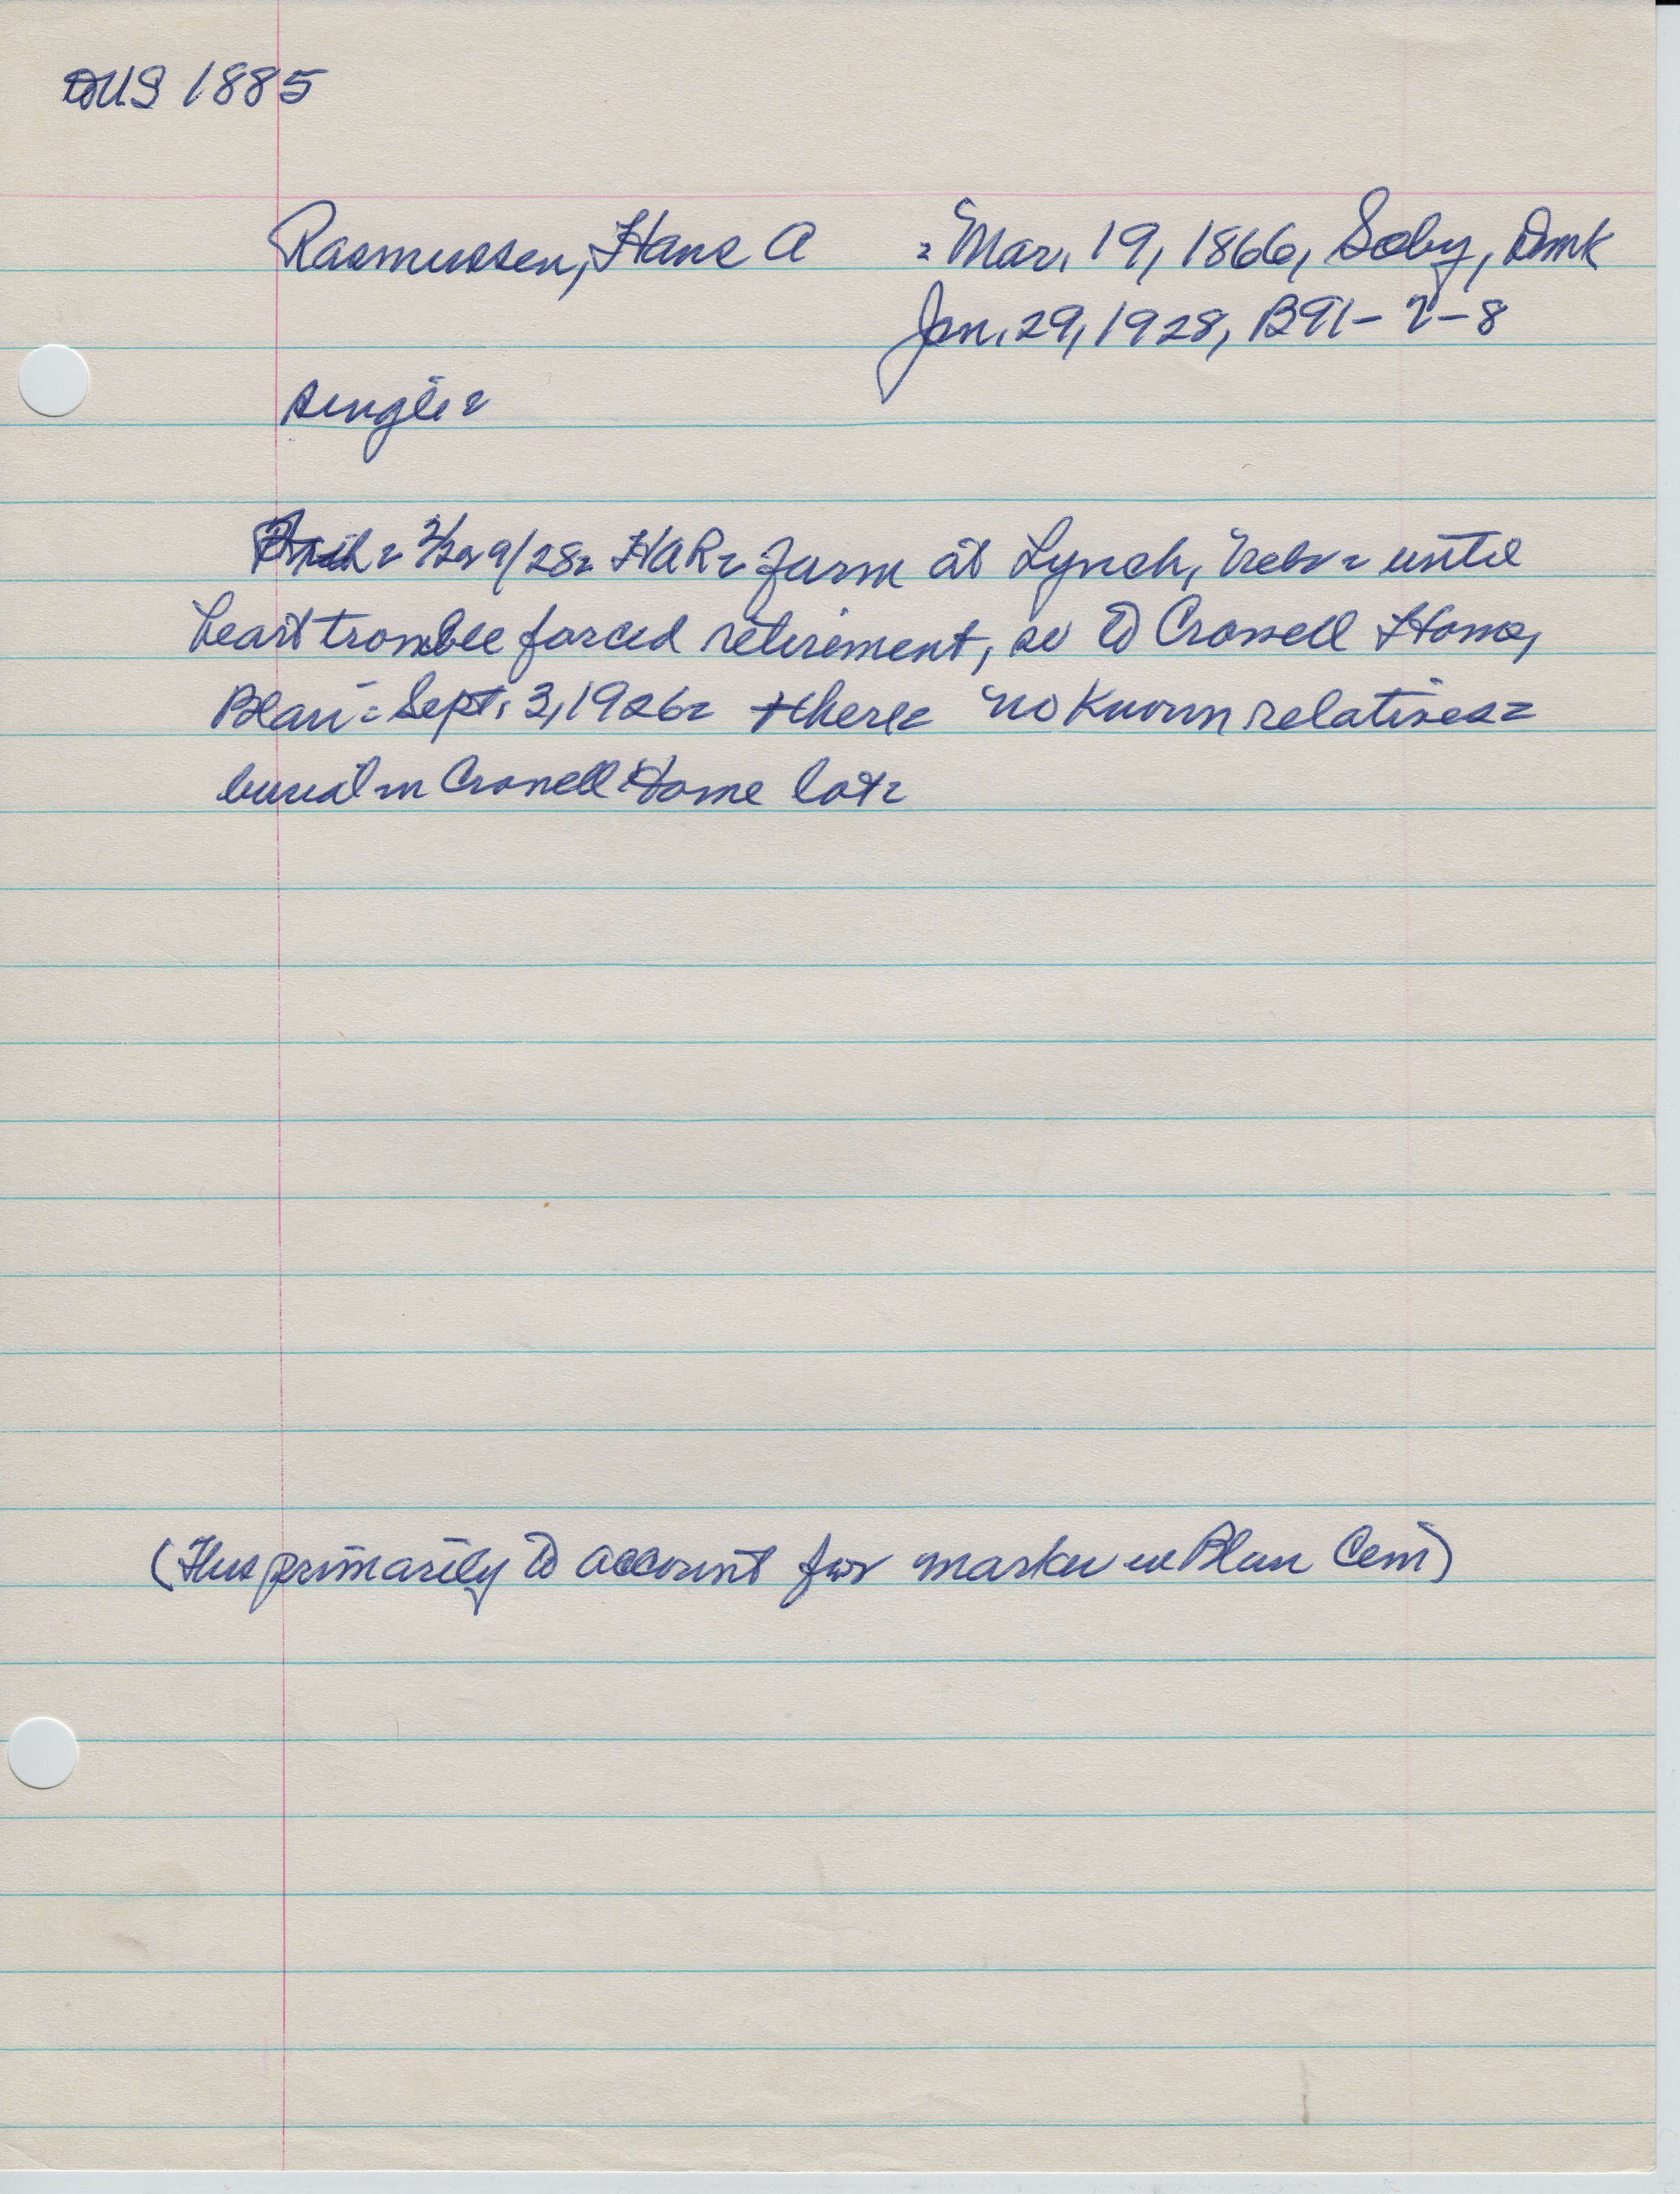 US 1885
Rasmussen, Hans A = Mar. 19, 1866, Soby, Dmk
Jan. 29, 1928, B91-2-8
single=
28= HAR= farm at Lynch, Nebr= until
heart trouble forced retirement, so to Crowell Home,
Blair= Sept. 3, 1926= there= no known relatives=
burial in Crowell Home lot=
(This primarily to account for marker in Blair Cem)